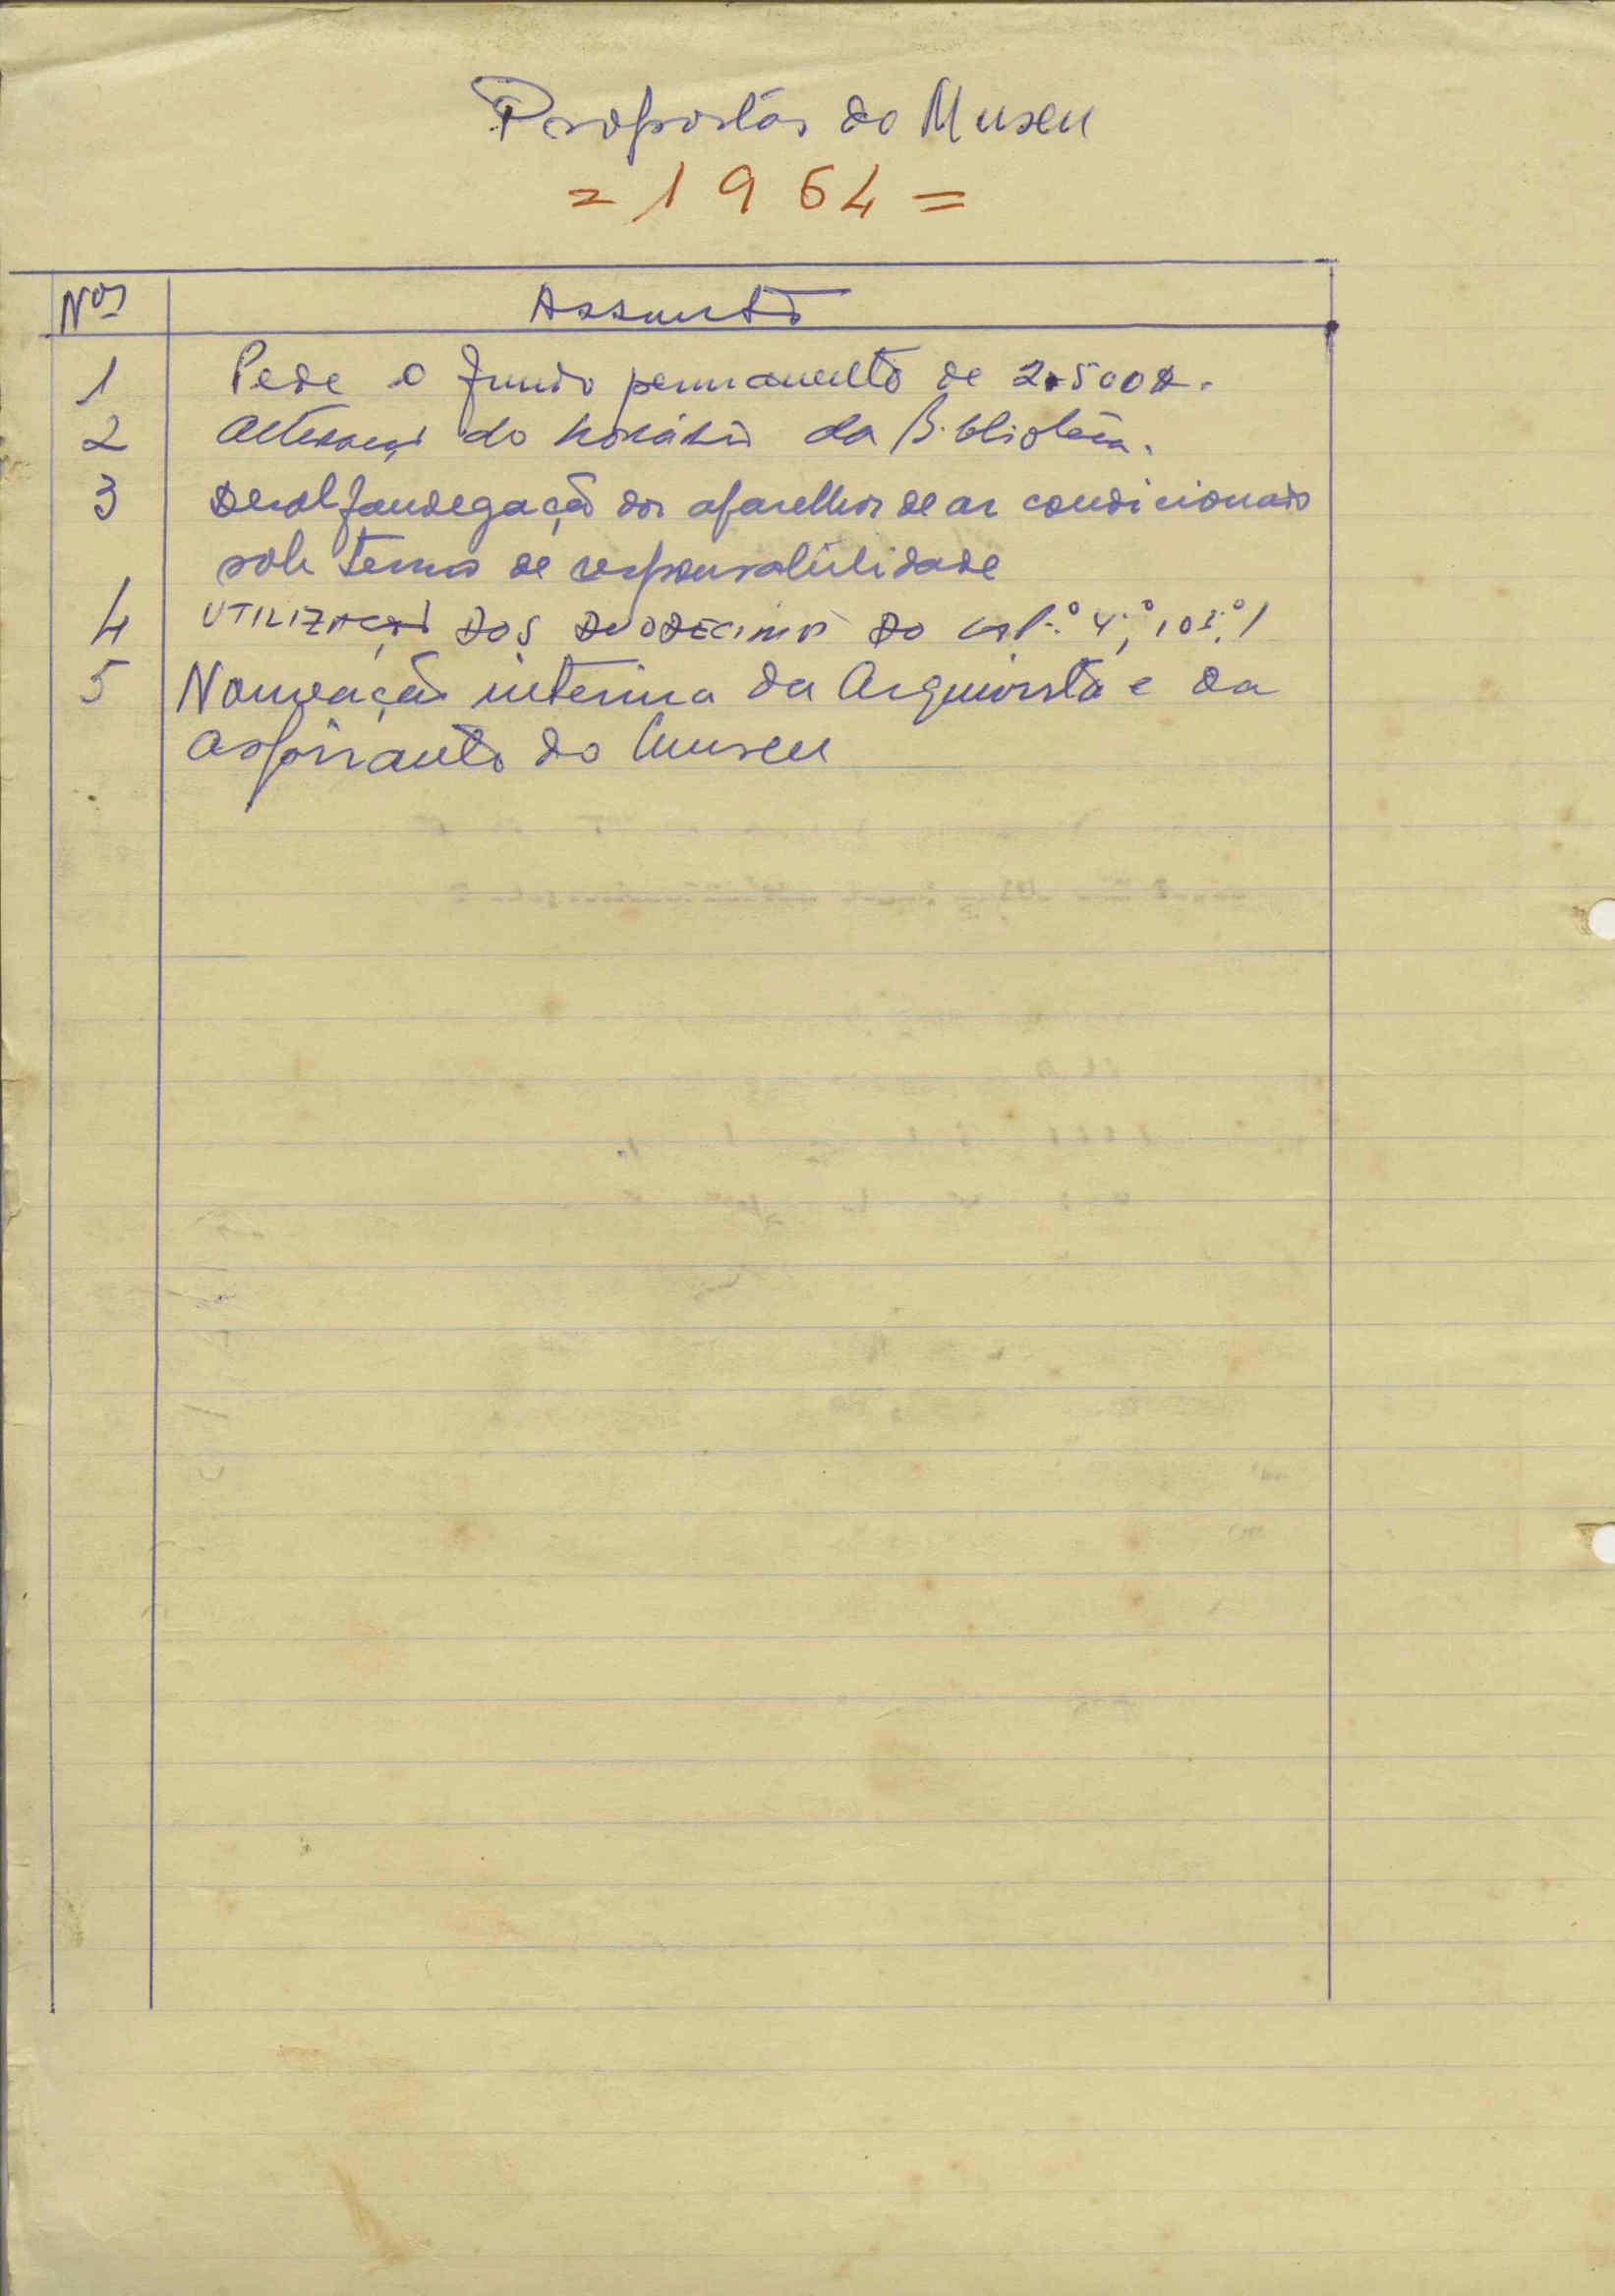 Propostas do Museu
= 1964 =
Nos Assunto
1 Pede o fundo permanente de 2.500$.
2 Alteração do horário da Biblioteca.
3 Desalfandegação dos aparelhos de ar condicionado
sob termo de responsabilidade
4 UTILIZAÇÃO DOS DUODECIMOS DO cap.º 4º,
5 Nomeação interina da Arquivista e da
aspirante do Museu